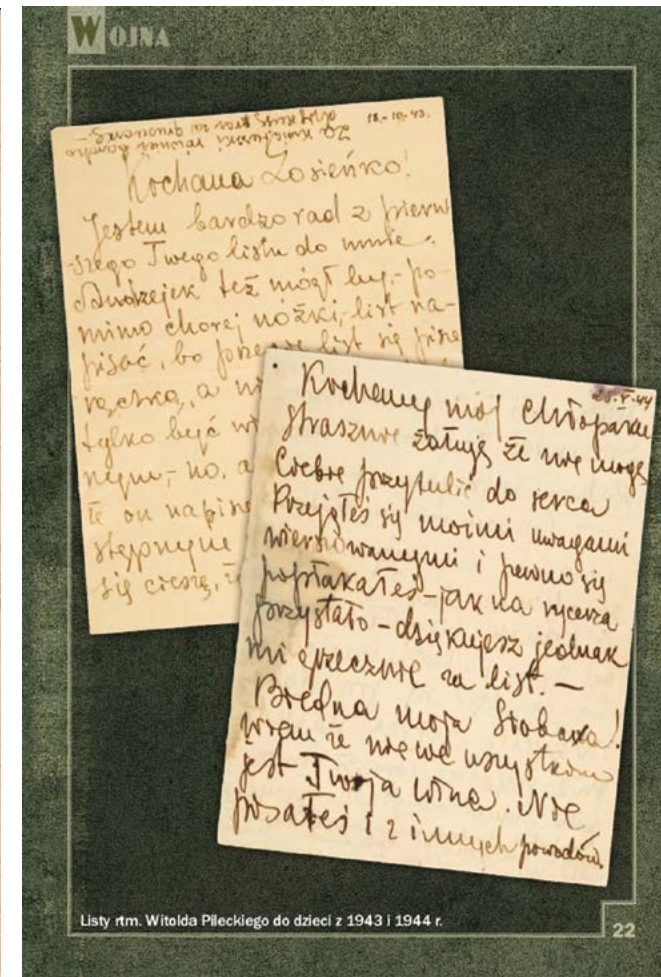 WOJNA
18.-10.-43.
Za kwiatuszki również bardzo
dziękuję
Kochana Zosieńko!
Jestem bardzo rad z pierw
-szego Twego listu do mnie.
Andrzejek też mógł by,- po-
mimo chorej nóżki,- list na-
pisać, bo przecie list się pisze
rączką, a ni
tylko być wi
nym,- no, a
że on napisz
stępnym
się cieszę, że
Kochany mój chłopaku
Strasznie żałuję że nie mogę
Ciebie przytulić do serca
Przejąłeś się moimi uwagami
wierszowanymi i pewno się
popłakałeś - jak na rycerza
przystało - dziękujesz jednak
mi grzecznie za list. —
Biedna moja
wiem że nie we wszystkim
jest Twoja wina. Nie
pisałeś i z innych powodów.
Listy rtm. Witolda Pileckiego do dzieci z 1943 i 1944 r.
22